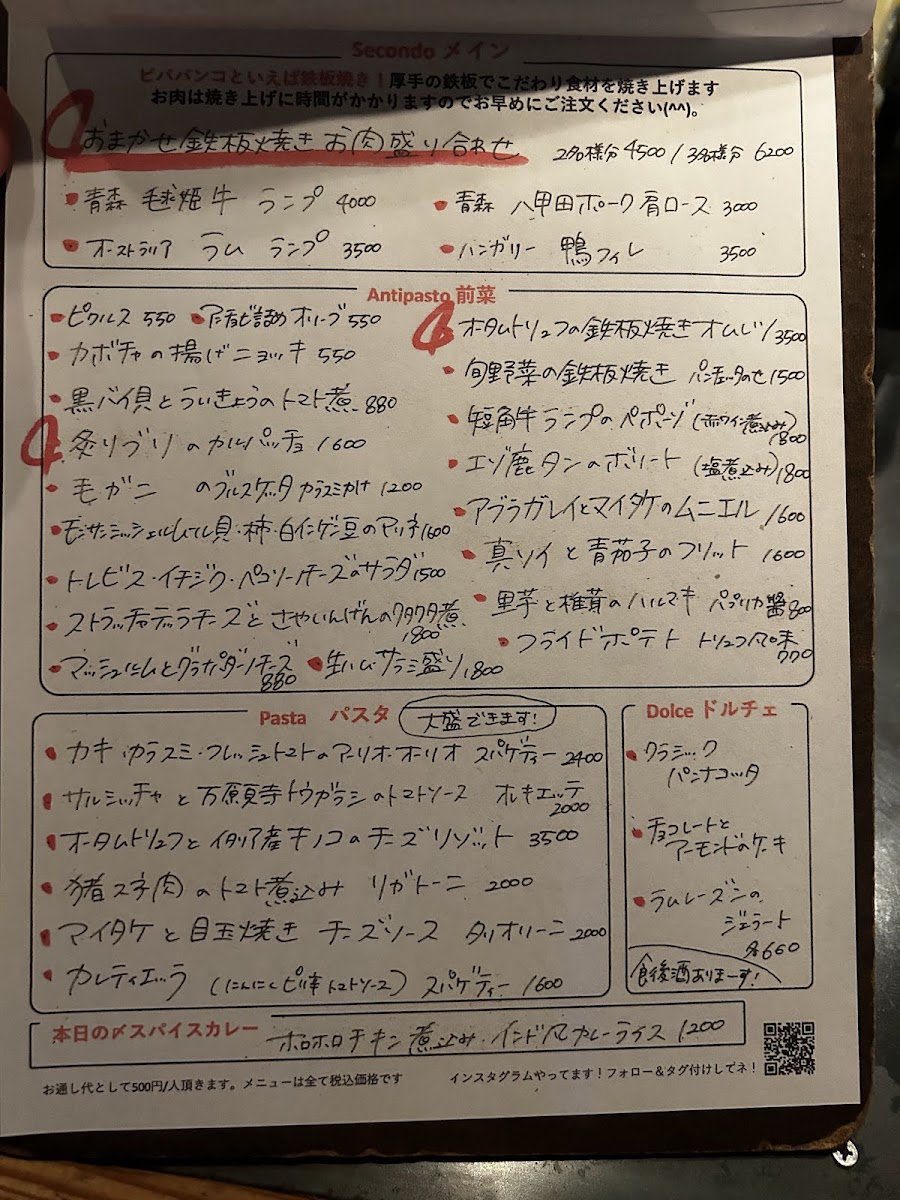 Secondo メイン
ビバパンコといえば鉄板焼き！厚手の鉄板でこだわり食材を焼き上げます
お肉は焼き上げに時間がかかりますのでお早めにご注文ください(^^)。
おまかせ鉄板焼き お肉盛り合わせ 2名様分 4500 / 3名様分 6200
青森 毬姫牛 ランプ 4000
青森 八甲田ポーク肩ロース 3000
オーストラリア ラム ランプ 3500
ハンガリー 鴨フィレ 3500
Antipasto 前菜
ピクルス 550
アンチョビ詰め オリーブ 550
カボチャの揚げニョッキ 550
黒バイ貝とういきょうのトマト煮 880
炙りブリのカルパッチョ 1600
毛ガニ のブルスケッタ カラスミかけ 1200
モンサンミッシェルムール貝・柿・白インゲン豆のマリネ 1600
トレビス・イチジク・ペコリーノチーズのサラダ 1500
ストラッチャテッラチーズとさやいんげんのクタクタ煮 1800
マッシュルームとグラナパダーノチーズ 880
生ハム サラミ盛り 1800
オータムトリュフの鉄板焼きオムレツ 3500
旬野菜の鉄板焼き パンチェッタのせ 1500
短角牛ランプのペポーゾ (赤ワイン煮込み) 1800
エゾ鹿タンのボリート (塩煮込み) 1800
アブラガレイとマイタケのムニエル 1600
真ソイと青茄子のフリット 1600
里芋と椎茸のハルマキ パプリカ醬 800
フライドポテト トリュフ風味 770
Pasta パスタ
大盛できます！
カキ・カラスミ・フレッシュトマトのアーリオ・オーリオ スパゲティー 2400
サルシッチャと万願寺トウガラシのトマトソース オレキエッテ 2000
オータムトリュフとイタリア産キノコのチーズリゾット 3500
猪スネ肉のトマト煮込み リガトーニ 2000
マイタケと目玉焼き チーズソース タリオリーニ 2000
カレティエッラ (にんにくピリ辛トマトソース) スパゲティー 1600
Dolce ドルチェ
クラシック
パンナコッタ
チョコレートと
アーモンドのケーキ
ラムレーズンの
ジェラート
各660
食後酒ありまーす！
本日の〆スパイスカレー ホロホロチキン煮込み・インド風カレーライス 1200
お通し代として500円/人頂きます。メニューは全て税込価格です
インスタグラムやってます！フォロー＆タグ付けしてネ！